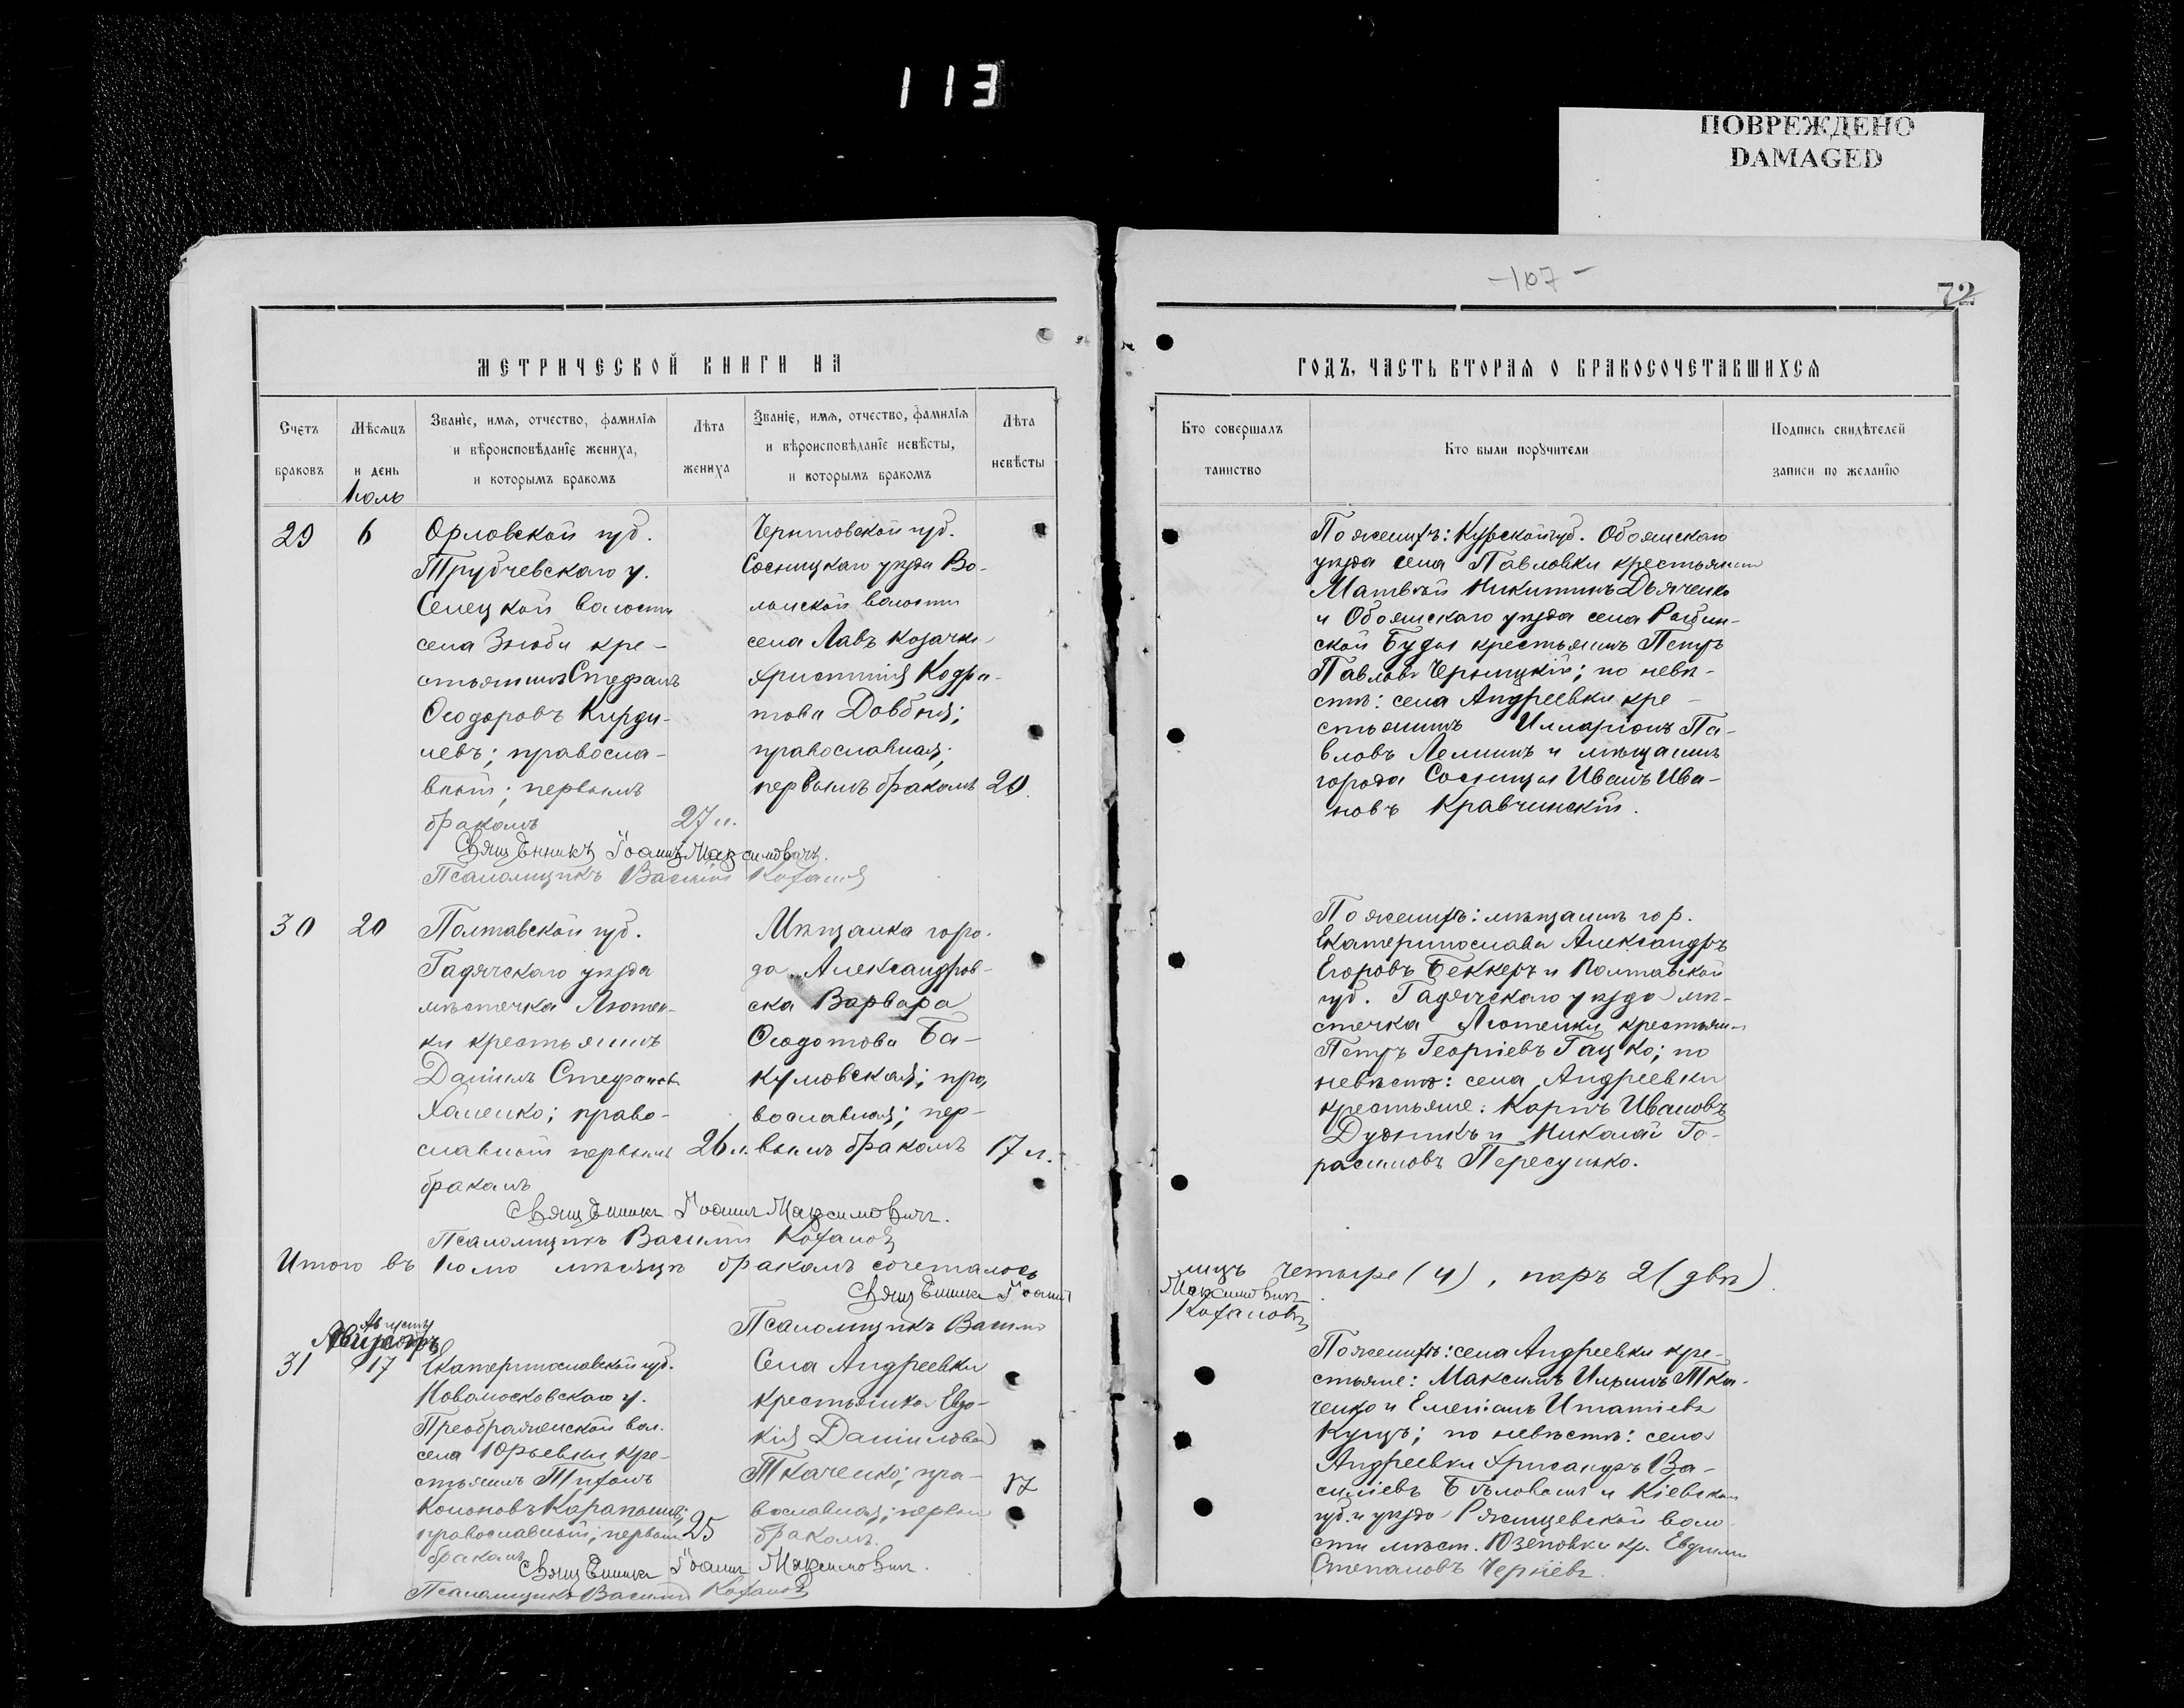 113
ПОВРЕЖДЕНО
DAMAGED
-107-
72
МЕТРИЧЕСКОЙ КНИГИ НА
ГОДЪ, ЧАСТЬ ВТОРАЯ О БРАКОСОЧЕТАВШИХСЯ
Счетъ браковъ
Мѣсяцъ и день
Званіе, имя, отчество, фамилія и вѣроисповѣданіе жениха, и которымъ бракомъ
Лѣта жениха
Званіе, имя, отчество, фамилія и вѣроисповѣданіе невѣсты, и которымъ бракомъ
Лѣта невѣсты
Кто совершалъ таинство
Кто были поручители
Подпись свидѣтелей записи по желанію
Іюль
29
6
Орловской губ.
Трубчевскаго у.
Селецкой волости
села Зноби кре-
стьянинъ Стефанъ
Ѳеодоровъ Кирди-
левъ; правосла-
вный; первымъ
бракомъ
27 л.
Черниговской губ.
Сосницкаго уѣзда Во-
лынской волости
села Лавъ козачка
Христина Кодра-
това Довбня;
православная;
первымъ бракомъ
20.
Священникъ Іоаннъ Максимовичъ.
Псаломщикъ Василій Кохановъ
По женихѣ: Курской губ. Обоянскаго
уѣзда села Павловки крестьянинъ
Матвѣй Никитинъ Дьяченко
и Обоянскаго уѣзда села Рыбин-
ской Буды крестьянинъ Петръ
Павловъ Черницкій; по невѣ-
стѣ: села Андреевки кре-
стьянинъ Илларіонъ Па-
вловъ Леминъ и мѣщанинъ
города Сосницы Иванъ Ива-
новъ Кравчинскій.
30
20
Полтавской губ.
Гадячскаго уѣзда
мѣстечка Лютен-
ки крестьянинъ
Даніилъ Стефановъ
Халенко; право-
славный первымъ
бракомъ
26 л.
Мѣщанка горо-
да Александров-
ска Варвара
Ѳеодотова Ба-
кумовская; пра-
вославная; пер-
вымъ бракомъ
17 л.
Священникъ Іоаннъ Максимовичъ.
Псаломщикъ Василій Кохановъ
По женихѣ: мѣщанинъ гор.
Екатеринослава Александръ
Егоровъ Беккеръ и Полтавской
губ. Гадячскаго уѣзда мѣ-
стечка Лютенки крестьян-
Петръ Георгіевъ Гацко; по
невѣстѣ: села Андреевки
крестьяне: Карпъ Ивановъ
Дудникъ и Николай Ге-
расимовъ Пересунько.
Итого въ Іюлѣ мѣсяцѣ бракомъ сочеталось
лицъ четыре (4), паръ 2 (двѣ)
Священникъ Іоаннъ
Максимовичъ
Псаломщикъ Василій
Кохановъ
Августъ
31
17
Екатеринославской губ.
Новомосковскаго у.
Преображенской вол.
села Юрьевки кре-
стьянинъ Тихонъ
Кононовъ Карапышъ;
православный; первымъ
бракомъ
25
Села Андреевки
крестьянка Евдо-
кія Даніилова
Ткаченко; пра-
вославная; первым
бракомъ.
17
Священникъ Іоаннъ Максимовичъ.
Псаломщикъ Василій Кохановъ
По женихѣ: села Андреевки кре-
стьяне: Максимъ Ильинъ Тка-
ченко и Емеліанъ Игнатіевъ
Куцъ; по невѣстѣ: села
Андреевки Хрисанфъ Ва-
силіевъ Бѣловолъ и Кіевской
губ. и уѣзда Ряжищевской воло-
сти мѣст. Юзеповки кр. Евфимій
Степановъ Черніевъ.